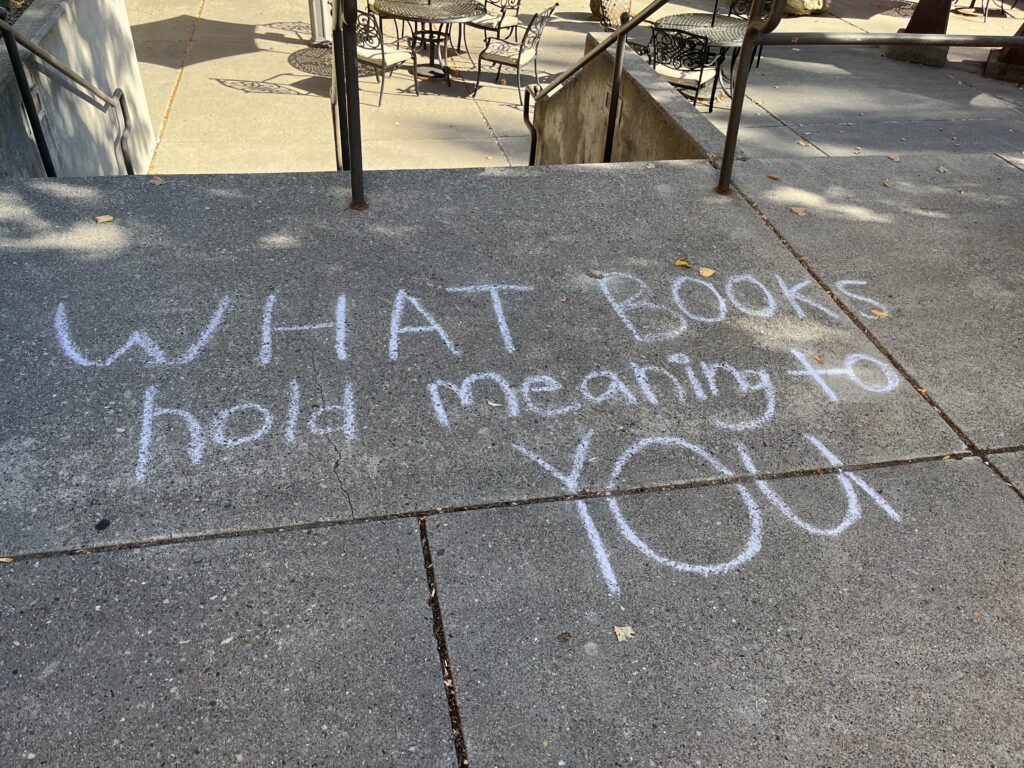 WHAT BOOKS
hold meaning to
YOU